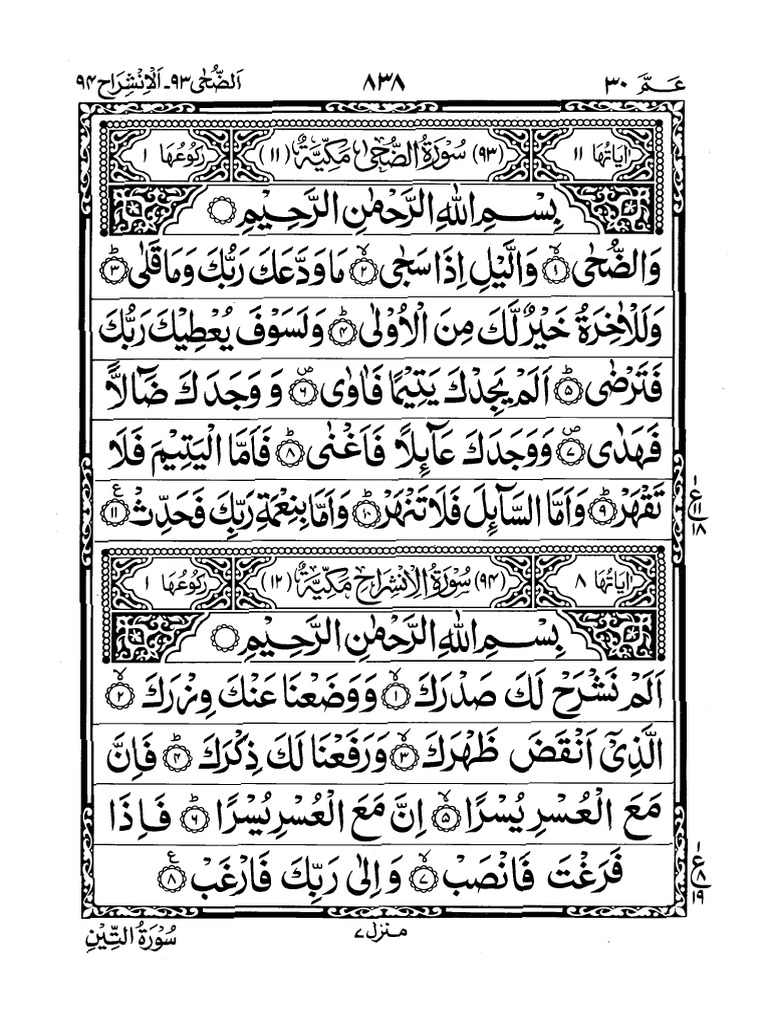 عَمَّ ۳۰ ۸۳۸ اَلضُّحٰى ۹۳ - اَلْاِنْشِرَاح ۹۴
اٰیَاتُهَا ۱۱ (۹۳) سُوْرَةُ الضُّحٰى مَكِّیَّةٌ (۱۱) رُكُوْعُهَا ۱
بِسْمِ اللّٰهِ الرَّحْمٰنِ الرَّحِیْمِ
وَالضُّحٰى ۙ‏﴿۱﴾ وَالَّیْلِ اِذَا سَجٰى ۙ‏﴿۲﴾ مَا وَدَّعَكَ رَبُّكَ وَمَا قَلٰى ؕ‏﴿۳﴾
وَلَلْاٰخِرَةُ خَیْرٌ لَّكَ مِنَ الْاُوْلٰى ؕ‏﴿۴﴾ وَلَسَوْفَ یُعْطِیْكَ رَبُّكَ
فَتَرْضٰى ؕ‏﴿۵﴾ اَلَمْ یَجِدْكَ یَتِیْمًا فَاٰوٰى ۪‏﴿۶﴾ وَ وَجَدَكَ ضَآلًّا
فَهَدٰى ۪‏﴿۷﴾ وَوَجَدَكَ عَآئِلًا فَاَغْنٰى ؕ‏﴿۸﴾ فَاَمَّا الْیَتِیْمَ فَلَا
تَقْهَرْ ؕ‏﴿۹﴾ وَاَمَّا السَّآئِلَ فَلَا تَنْهَرْ ؕ‏﴿۱۰﴾ وَاَمَّا بِنِعْمَةِ رَبِّكَ فَحَدِّثْ ﴿۱۱﴾ ع
۱ ع ۱۱ ۱۸
اٰیَاتُهَا ۸ (۹۴) سُوْرَةُ الْاِنْشِرَاحِ مَكِّیَّةٌ (۱۲) رُكُوْعُهَا ۱
بِسْمِ اللّٰهِ الرَّحْمٰنِ الرَّحِیْمِ
اَلَمْ نَشْرَحْ لَكَ صَدْرَكَ ۙ‏﴿۱﴾ وَوَضَعْنَا عَنْكَ وِزْرَكَ ۙ‏﴿۲﴾
الَّذِیْۤ اَنْقَضَ ظَهْرَكَ ۙ‏﴿۳﴾ وَرَفَعْنَا لَكَ ذِكْرَكَ ؕ‏﴿۴﴾ فَاِنَّ
مَعَ الْعُسْرِ یُسْرًا ۙ‏﴿۵﴾ اِنَّ مَعَ الْعُسْرِ یُسْرًا ؕ‏﴿۶﴾ فَاِذَا
فَرَغْتَ فَانْصَبْ ۙ‏﴿۷﴾ وَاِلٰى رَبِّكَ فَارْغَبْ ﴿۸﴾ ع
۱ ع ۸ ۱۹
منزل ۷
سُوْرَةُ التِّیْنِ